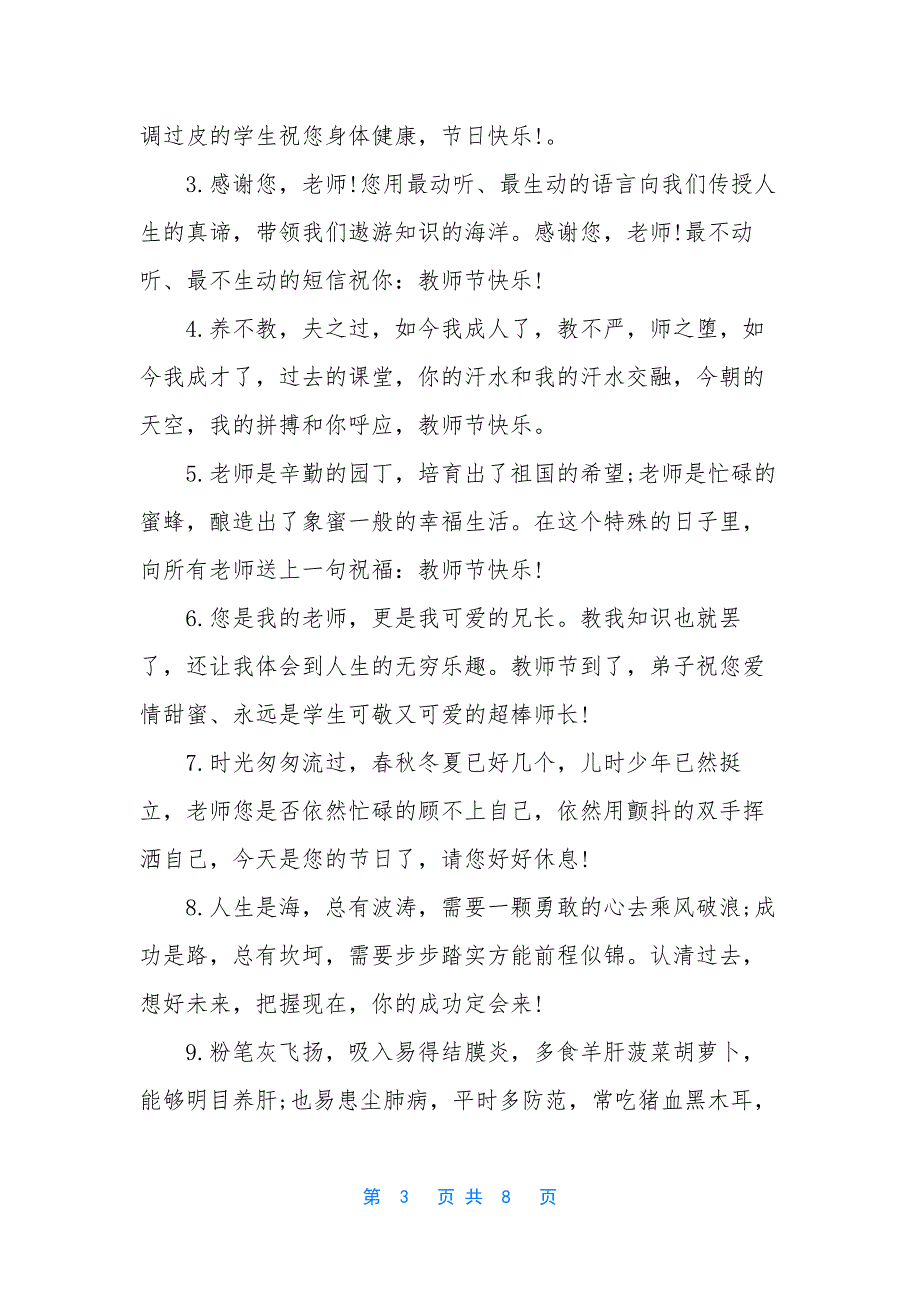 调过皮的学生祝您身体健康，节日快乐!。
3.感谢您，老师!您用最动听、最生动的语言向我们传授人
生的真谛，带领我们遨游知识的海洋。感谢您，老师!最不动
听、最不生动的短信祝你：教师节快乐!
4.养不教，夫之过，如今我成人了，教不严，师之堕，如
今我成才了，过去的课堂，你的汗水和我的汗水交融，今朝的
天空，我的拼搏和你呼应，教师节快乐。
5.老师是辛勤的园丁，培育出了祖国的希望;老师是忙碌的
蜜蜂，酿造出了象蜜一般的幸福生活。在这个特殊的日子里，
向所有老师送上一句祝福：教师节快乐!
6.您是我的老师，更是我可爱的兄长。教我知识也就罢
了，还让我体会到人生的无穷乐趣。教师节到了，弟子祝您爱
情甜蜜、永远是学生可敬又可爱的超棒师长!
7.时光匆匆流过，春秋冬夏已好几个，儿时少年已然挺
立，老师您是否依然忙碌的顾不上自己，依然用颤抖的双手挥
洒自己，今天是您的节日了，请您好好休息!
8.人生是海，总有波涛，需要一颗勇敢的心去乘风破浪;成
功是路，总有坎坷，需要步步踏实方能前程似锦。认清过去，
想好未来，把握现在，你的成功定会来!
9.粉笔灰飞扬，吸入易得结膜炎，多食羊肝菠菜胡萝卜，
能够明目养肝;也易患尘肺病，平时多防范，常吃猪血黑木耳，
第 3 页 共 8 页